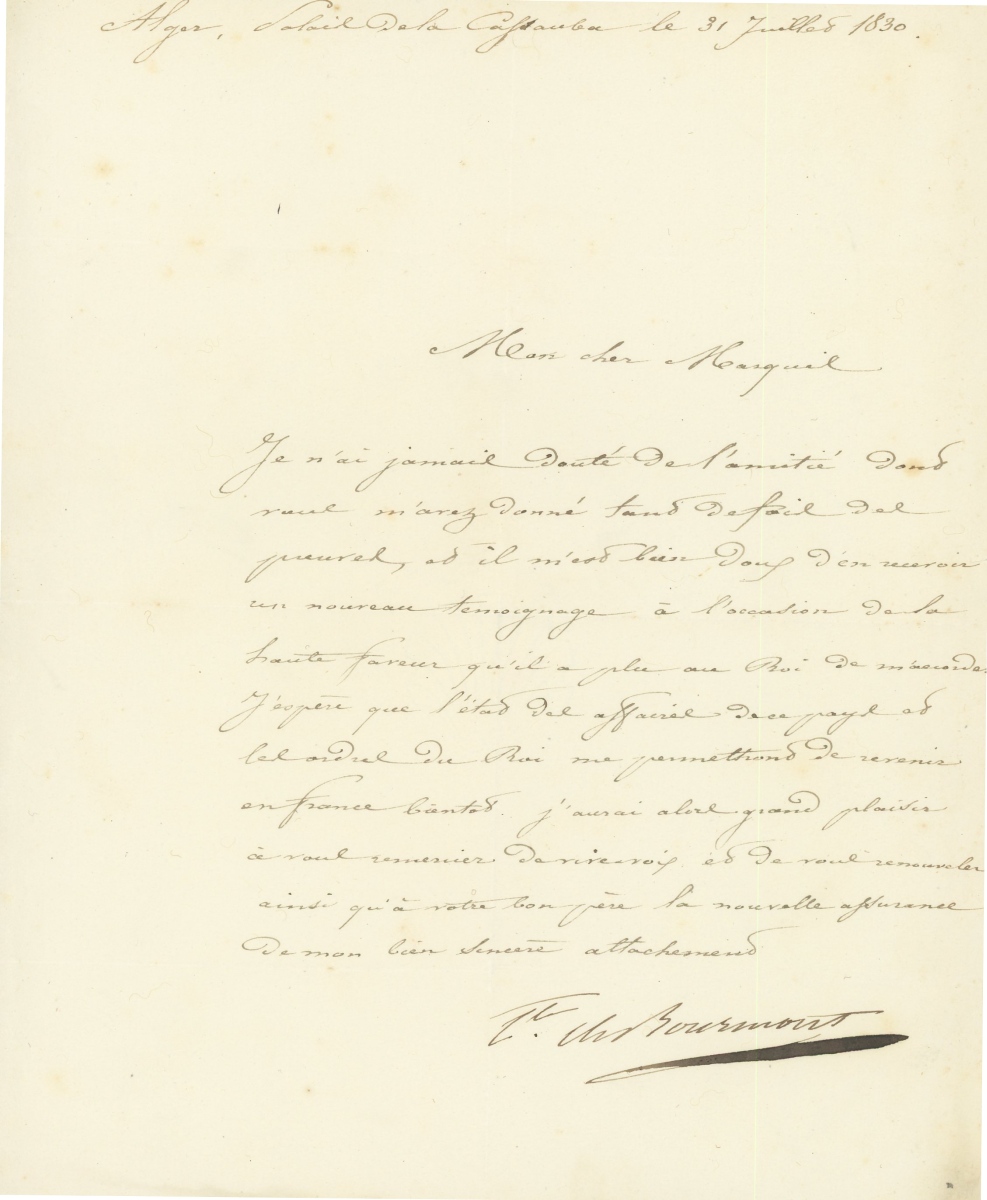 Alger, Palais de la Cassauba le 31 Juillet 1830.
Mon cher Marquis
Je n'ai jamais douté de l'amitié dont
vous m'avez donné tant de fois des
preuves, et il m'est bien doux d'en recevoir
un nouveau temoignage à l'occasion de la
haute faveur qu'il a plu au Roi de m'accorder
J'espère que l'état des affaires de ce pays et
les ordres du Roi me permettront de revenir
en france bientôt. j'aurai alors grand plaisir
à vous remercier de vive voix et de vous renouveler
ainsi qu'à votre bon père la nouvelle assurance
de mon bien sincère attachement
Cte. de Bourmont